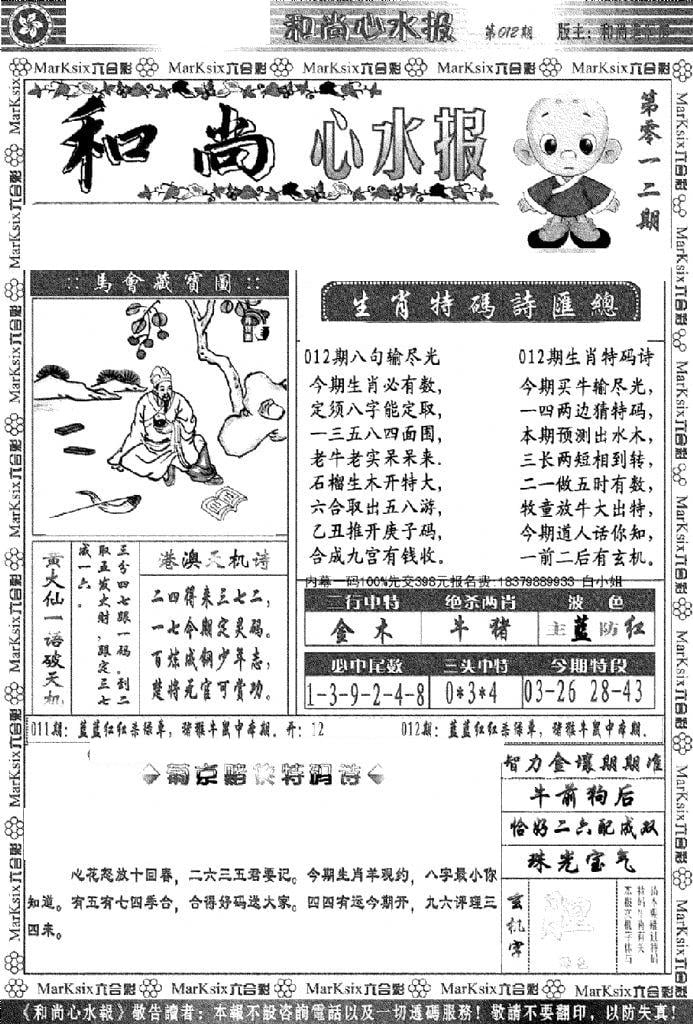 和尚心水报 第012期 版主：和尚
MarKsix六合彩 MarKsix六合彩 MarKsix六合彩 MarKsix六合彩 MarKsix六合彩
和尚 心水报
第零一二期
::馬會藏寶圖::
黄大仙一语破天机
三分四七跟一码。到二
取五发大财，跟定三七
减一六。
港澳天机诗
二四得来三七二，
一七今期定灵码。
百炼成钢少年志，
楚将元官可赏功。
生肖特碼詩匯總
012期八句输尽光
今期生肖必有数，
定须八字能定取，
一三五八四面围，
老牛老实呆呆来.
石榴生木开特大，
六合取出五八游，
乙丑推开庚子码，
合成九宫有钱收。
012期生肖特码诗
今期买牛输尽光，
一四两边猜特码，
本期预测出水木，
三长两短相到转，
二一做五时有数，
牧童放牛大出特，
今期道人话你知，
一前二后有玄机。
内幕一码100%先交398元报名费:18379889933 白小姐
二行中特 绝杀两肖 波色
金木 牛猪 主蓝防红
必中尾数 三头中特 今期特段
1-3-9-2-4-8 0*3*4 03-26 28-43
011期：蓝蓝红红杀绿单，猪猴牛鼠中本期。开：12
012期：蓝蓝红红杀绿单，猪猴牛鼠中本期。
◆葡京赌侠特码诗◆
心花怒放十回春，二六三五君要记。今期生肖羊现约，八字最小你
知道。有五有七四季合，合得好码送大家。四四有运今期开，九六评理三
四来。
智力金壤期期准
牛前狗后
恰好二六配成双
珠光宝气
玄机字
MarKsix六合彩 MarKsix六合彩 MarKsix六合彩 MarKsix六合彩 MarKsix六合彩
《和尚心水報》敬告讀者：本報不設咨詢電話以及一切透碼服務！敬請不要翻印，以防失真！